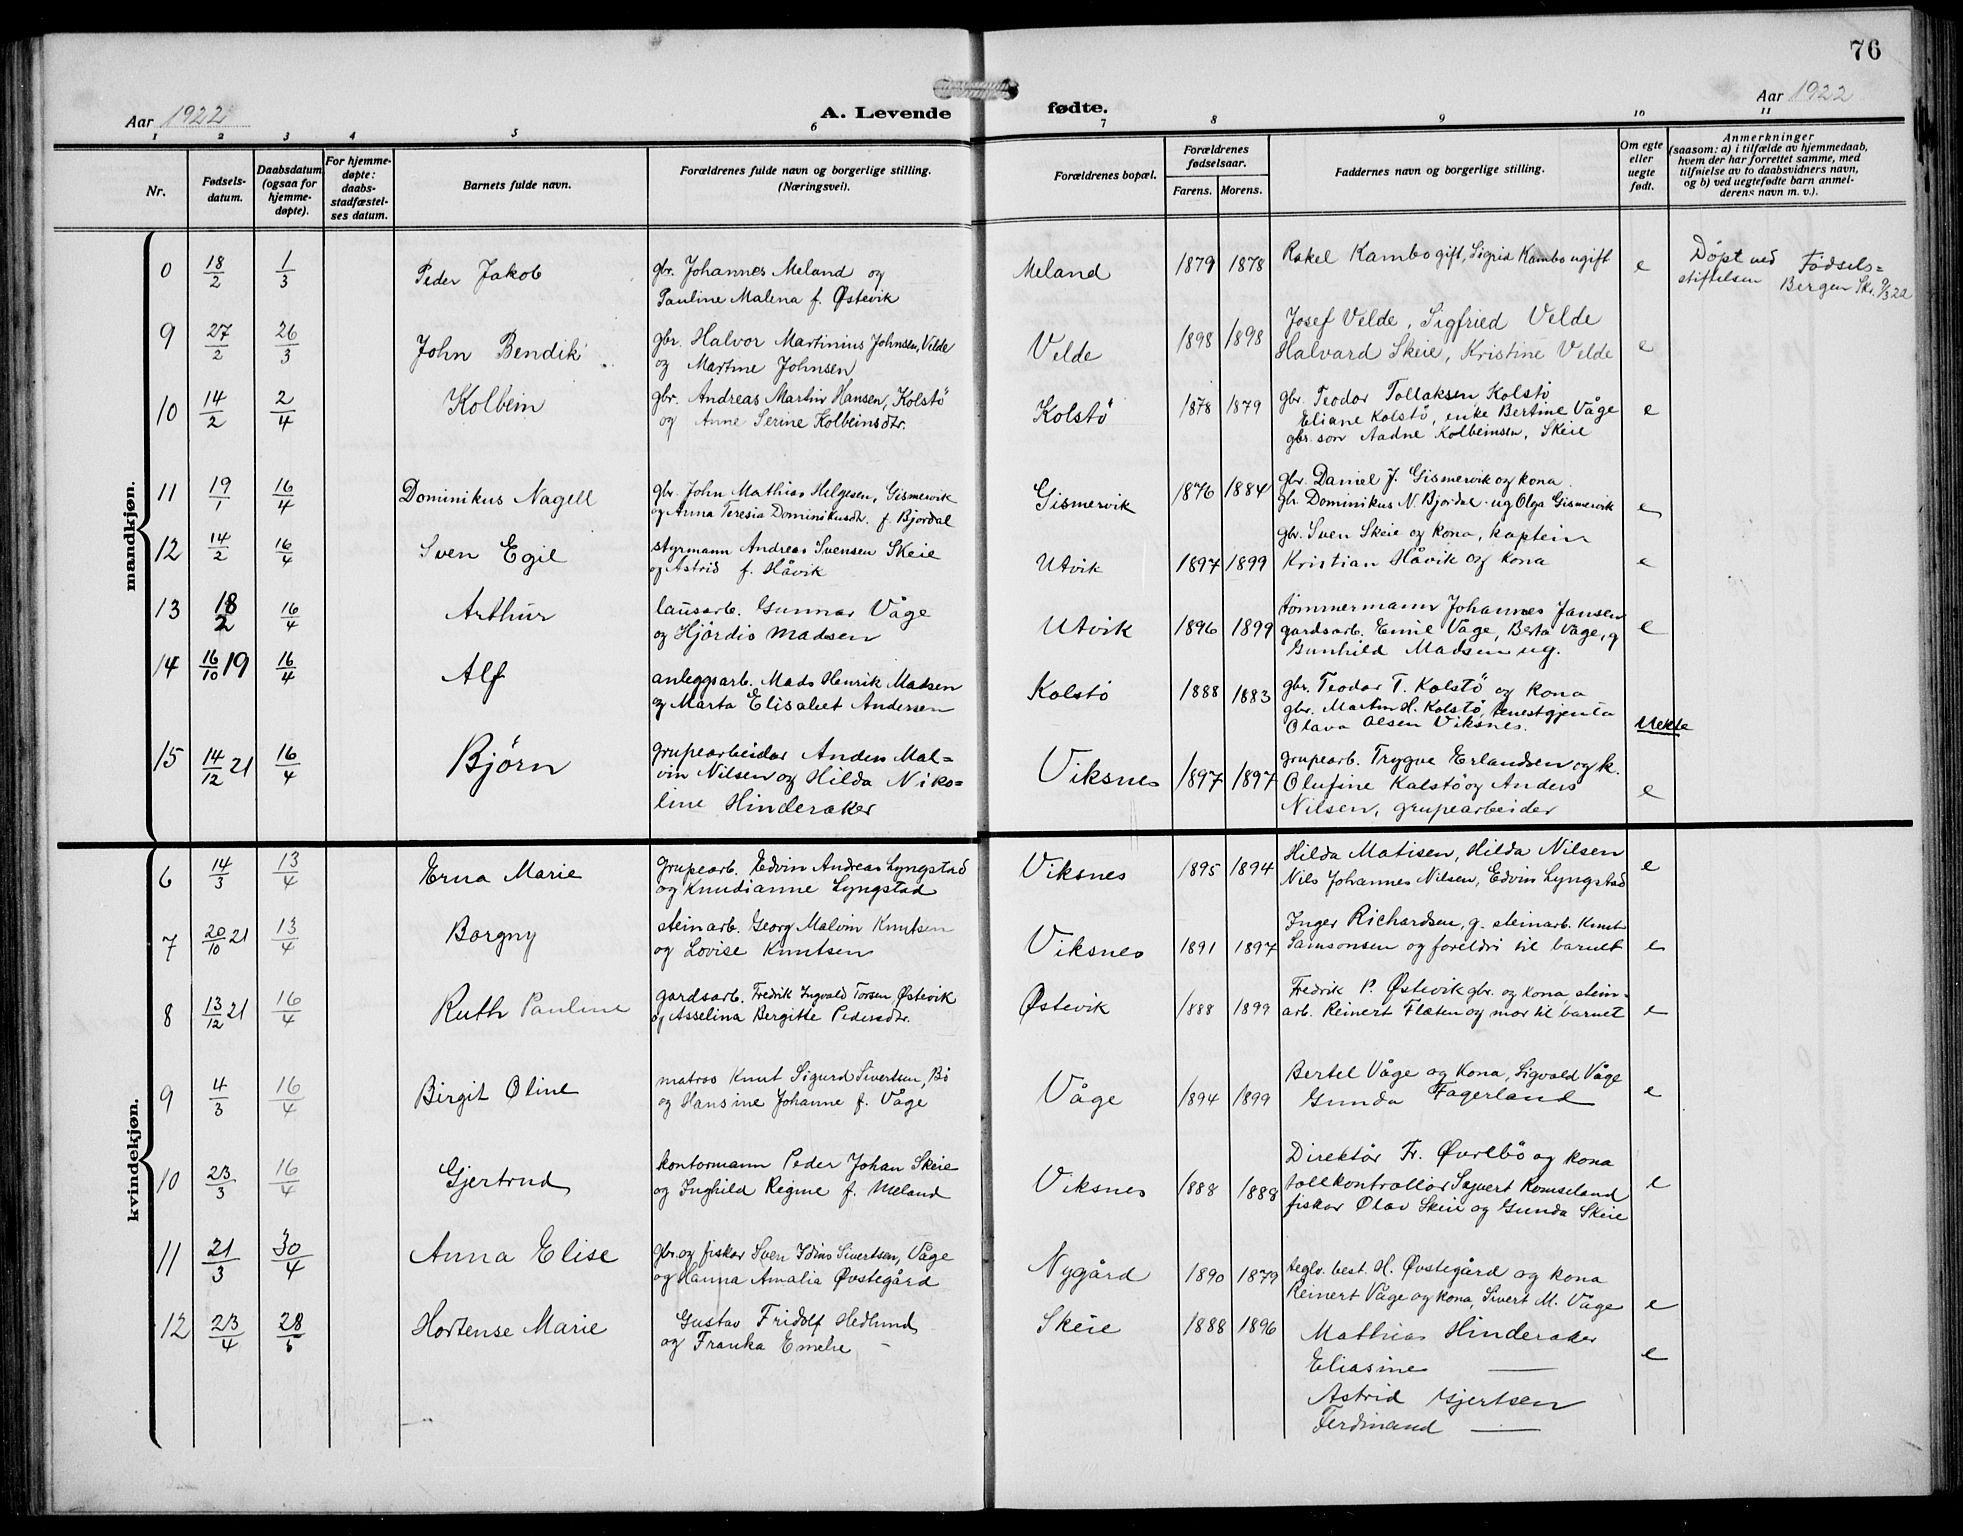 76
Aar 1922
A. Levende
fødte.
Aar 1922
1 2 3 4 5 6 7 8 9 10 11
Nr.
Fødsels-
datum.
Daabsdatum
(ogsaa for
hjemme-
døpte).
For hjemme-
døpte:
daabs-
stadfæstel-
ses datum.
Barnets fulde navn.
Forældrenes fulde navn og borgerlige stilling.
(Næringsvei).
Forældrenes bopæl.
Forældrenes
fødselsaar.
Farens. Morens.
Faddernes navn og borgerlig stilling.
Om egte
eller
uegte
født.
Anmerkninger
(saasom: a) i tilfælde av hjemmedaab,
hvem der har forrettet samme, med
tilføielse av to daabsvidners navn,
og b) ved uegtefødte barn anmel-
derens navn m. v.).
mandkjøn.
0 18/2 1/3 Peder Jakob gbr. Johannes Meland og
Pauline Malena f. Østevik
Meland 1879 1878 Rakel Kambo gift, Sigrid Kambo ugift e
Döpt ved Fødsels=
stiftelsen Bergen Skr. 9/3 22
9 27/2 26/3 John Bendik gbr. Halvor Martinius Johnsen, Velde
og Martine Johnsen
Velde 1898 1898 Josef Velde, Sigfried Velde
Halvard Skeie, Kristine Velde e
10 14/2 2/4 Kolbein gbr. Andreas Martin Hansen, Kolstö
og Anne Serine Kolbeinsdtr.
Kolstö 1878 1879 gbr. Teodor Tollaksen Kolstö
Eliane Kolstö, enke Bertine Våge e
gbr. son Aadne Kolbeinsen, Skeie
11 19/1 16/4 Dominikus Nagell gbr. John Mathias Helgesen, Gismervik
og Anna Teresia Dominikusdtr. f. Bjordal
Gismervik 1876 1884 gbr. Daniel J. Gismervik og kona
gbr. Dominikus N. Bjordal ug Olga Gismervik e
12 14/2 16/4 Sven Egil styrmann Andreas Svensen Skeie
og Astrid f. Håvik
Utvik 1897 1899 gbr. Sven Skeie og kona, kaptein
Kristian Håvik og kona e
13 18/2 16/4 Arthur lausarb. Gunnar Våge
og Hjördis Madsen
Utvik 1896 1899 tömmermann Johannes Jansen
gardsarb. Emil Våge, Berta Våge, g e
Gunhild Madsen ug.
14 16/10 19 16/4 Alf anleggsarb. Mads Henrik Madsen
og Marta Elisabet Andersen
Kolstö 1888 1883 gbr. Teodor T. Kolstö og kona
gbr. Martin H. Kolstö, tenestgjenta
Olava Olsen Viksnes. Uekte
15 14/12 21 16/4 Bjørn grupearbeidar Anders Mal=
vin Nilsen og Hilda Niko=
line Hinderaker
Viksnes 1897 1897 grupearb. Trygve Erlandsen og k.
Olufine Kolstö og Anders
Nilsen, grupearbeider e
kvindekjøn.
6 14/3 13/4 Erna Marie grupearb. Edvin Andreas Lyngstad
og Knudianne Lyngstad
Viksnes 1895 1894 Hilda Matisen, Hilda Nilsen
Nils Johannes Nilsen, Edvin Lyngstad e
7 20/10 21 13/4 Borgny steinarb. Georg Malvin Knutsen
og Lovise Knutsen
Viksnes 1891 1897 Inger Richardsen, g. steinarb. Knut
Samsonsen og foreldri til barnet e
8 13/12 21 16/4 Ruth Pauline gardsarb. Fredrik Ingvald Torsen, Østevik
og Asselina Bergitte Pedersdtr.
Østevik 1888 1899 Fredrik P. Østevik gbr. og kona, stein-
arb. Reinert Flæten og mor til barnet e
9 4/3 16/4 Birgit Oline matros Knut Sigurd Sivertsen, Bö
og Hansine Johanne f. Våge
Våge 1894 1899 Bertel Våge og Kona, Sigvald Våge
Gunda Fagerland e
10 23/3 16/4 Gjertrud kontormann Peder Johan Skeie
og Inghild Regine f. Meland
Viksnes 1888 1888 Direktör Fr. Øvrebö og kona
tollkontrollör Sigvert Romseland
fiskar Olav Skeie og Gunda Skeie e
11 21/3 30/4 Anna Elise gbr. og fiskar Sven Idius Sivertsen, Våge
og Hanna Amalia Øvstegård
Nygård 1890 1879 teglv. best. H. Øvstegård og kona
Reinert Våge og kona, Sivert M. Våge e
12 23/4 28/5 Hortense Marie Gustav Fridolf Hedlund
og Franka Emelie —
Skeie 1888 1896 Mathias Hinderaker
Eliasine — e
Astrid Gjertsen
Ferdinand —